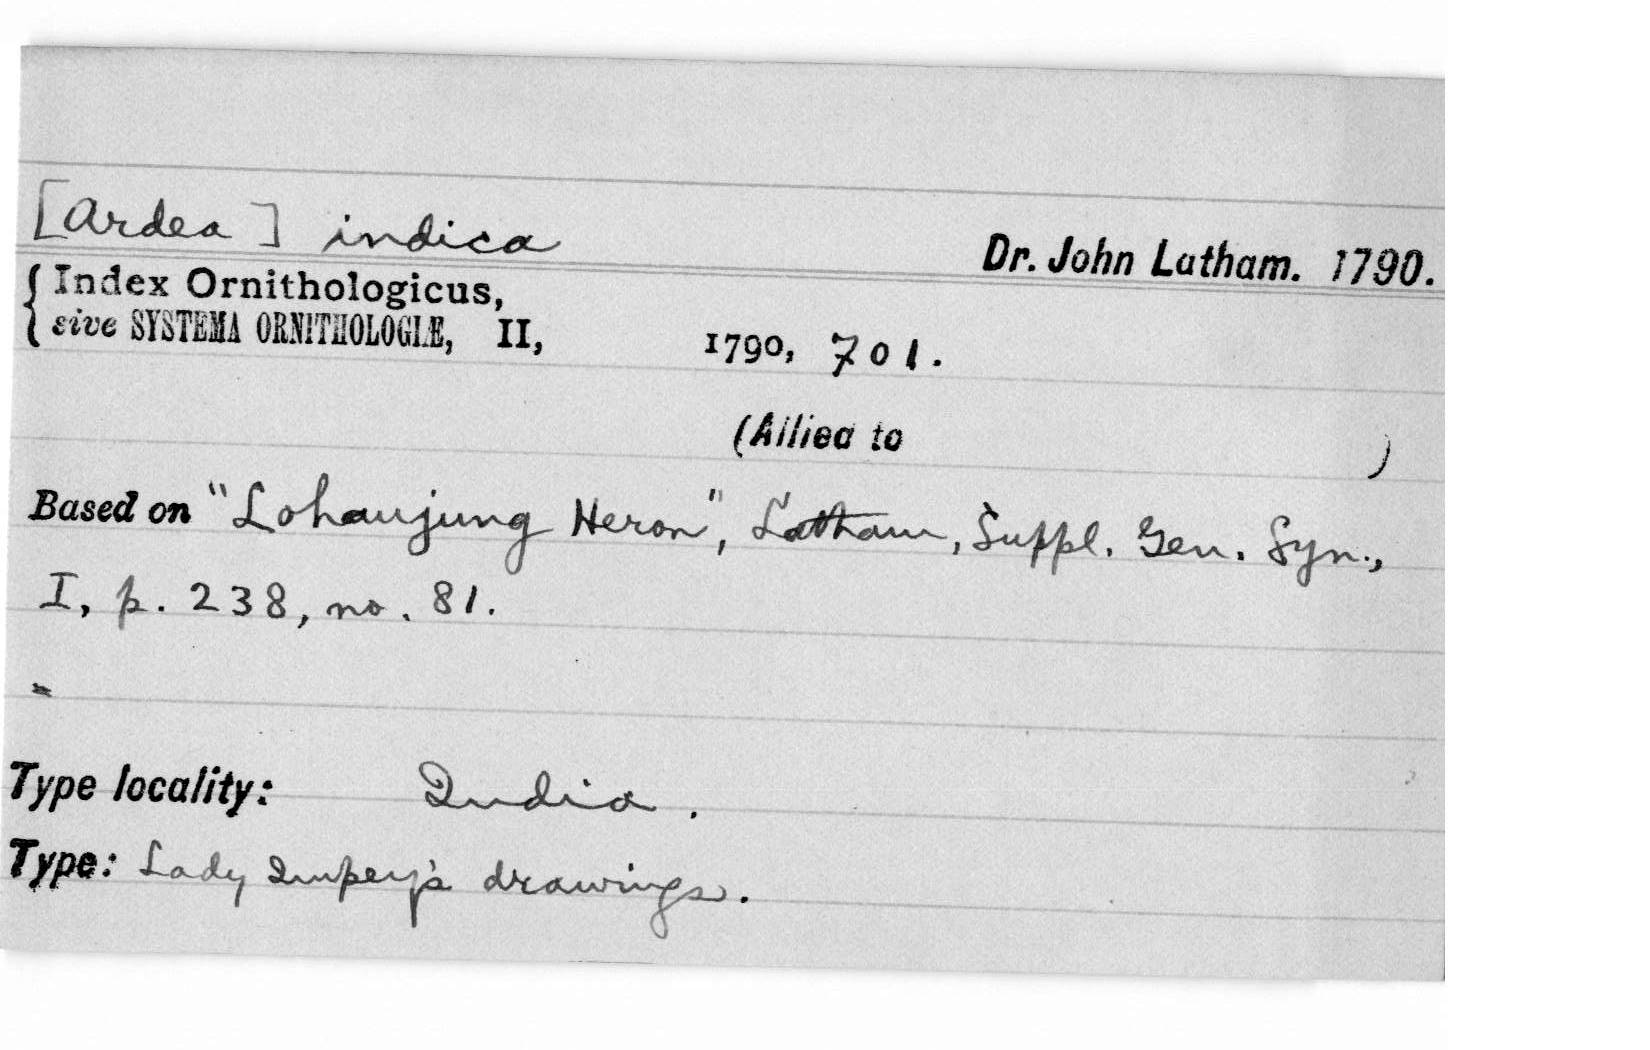 [Ardea] indica
Dr. John Latham. 1790.
{ Index Ornithologicus,
sive SYSTEMA ORNITHOLOGIÆ, II, 1790, 701.
(Allied to )
Based on "Lohaujung Heron", Latham, Suppl. Gen. Syn.,
I, p. 238, no. 81.
Type locality: India.
Type: Lady Impey's drawings.